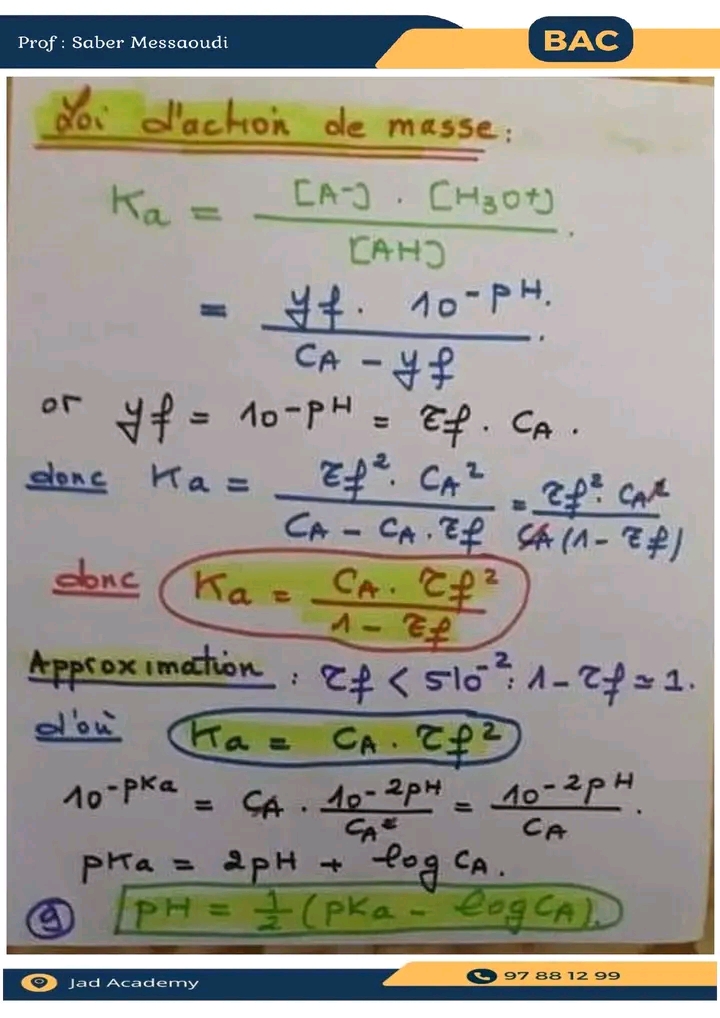 Prof : Saber Messaoudi
BAC
Loi d'action de masse :
Ka = [A-] . [H3O+] / [AH] .
= yf . 10^-pH . / CA - yf
or yf = 10^-pH = τf . CA .
donc Ka = τf² . CA² / CA - CA . τf = τf² . CA² / CA (1 - τf)
donc Ka = CA . τf² / 1 - τf
Approximation : τf < 5 10^-2 : 1 - τf ≃ 1 .
d'où Ka = CA . τf²
10^-pKa = CA . 10^-2pH / CA² = 10^-2pH / CA .
pKa = 2pH + log CA .
9 pH = 1/2 (pKa - log CA) .
Jad Academy
97 88 12 99